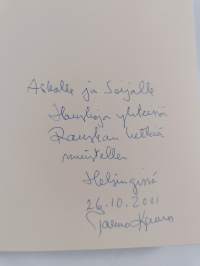 Askolle ja Seijalle
Hauskoja yhteisiä
Ranskan hetkiä
muistellen
Helsingissä
26.10.2011